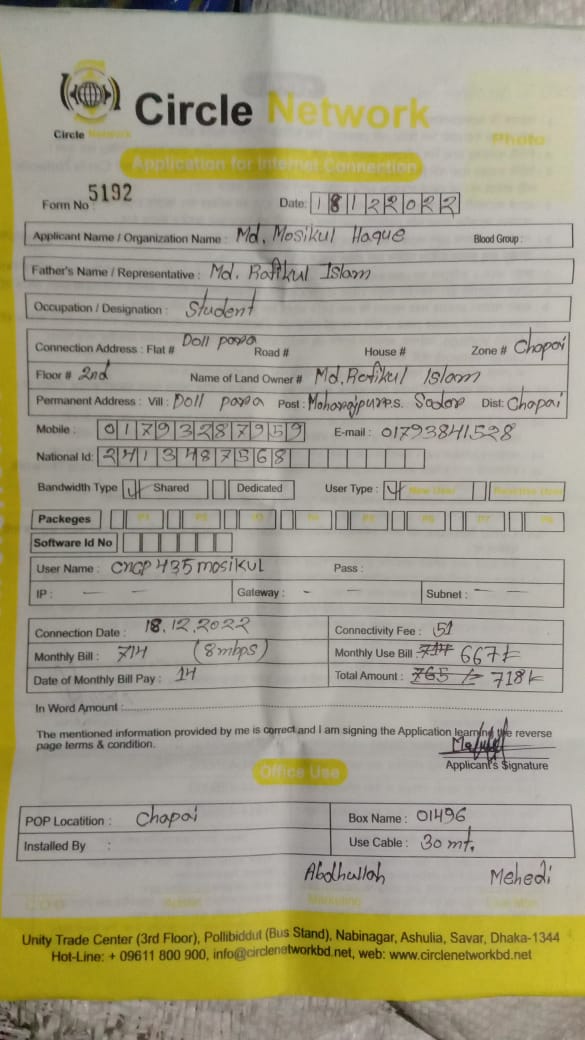 Circle Network
Circle Network
Photo
Application for Internet Connection
Form No : 5192
Date: 18122022
Applicant Name / Organization Name : Md. Mosikul Haque Blood Group :
Father's Name / Representative : Md. Rafikul Islam
Occupation / Designation : Student
Connection Address : Flat # Doll para Road # House # Zone # Chapai
Floor # 2nd Name of Land Owner # Md. Rafikul Islam
Permanent Address : Vill : Doll para Post : Sador Dist: Chapai
Mobile : 01793287959 E-mail : 01793841528
National Id: 2413487568
Bandwidth Type Shared Dedicated User Type : New User
Packeges P1 P2 P3 P4 P5 P6 P7 P8
Software Id No
User Name : CNCP435mosikul Pass :
IP : — — Gateway : - - Subnet : — —
Connection Date : 18.12.2022 Connectivity Fee : 51
Monthly Bill : 714 (8mbps) Monthly Use Bill 714 667/-
Date of Monthly Bill Pay : 14 Total Amount : 765 /= 718/-
In Word Amount :
The mentioned information provided by me is correct and I am signing the Application learning the reverse
page terms & condition.
Applicant's Signature
Office Use
POP Locatition : Chapai Box Name : 01496
Installed By : Use Cable : 30 mt.
Abdhullah Mehedi
Marketing
Unity Trade Center (3rd Floor), Pollibiddut (Bus Stand), Nabinagar, Ashulia, Savar, Dhaka-1344
Hot-Line: + 09611 800 900, info@circlenetworkbd.net, web: www.circlenetworkbd.net